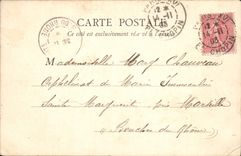 CARTE POSTALE
Ce côté est exclusivement réservé à l'adresse
Mademoiselle Mary Chauveau
Orphelinat de Marie Immaculée
Sainte Marguerite près Marseille
Bouches du Rhône